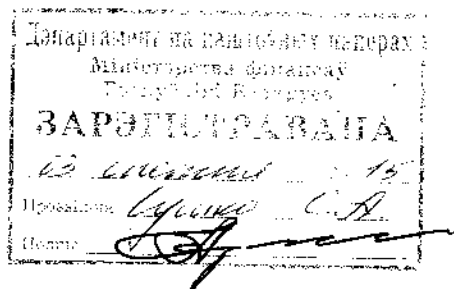 Дэпартамент па каштоўных паперах
Міністэрства фінансаў
Рэспублікі Беларусь
ЗАРЭГІСТРАВАНА
15
Прозвішча С.А
Подпіс